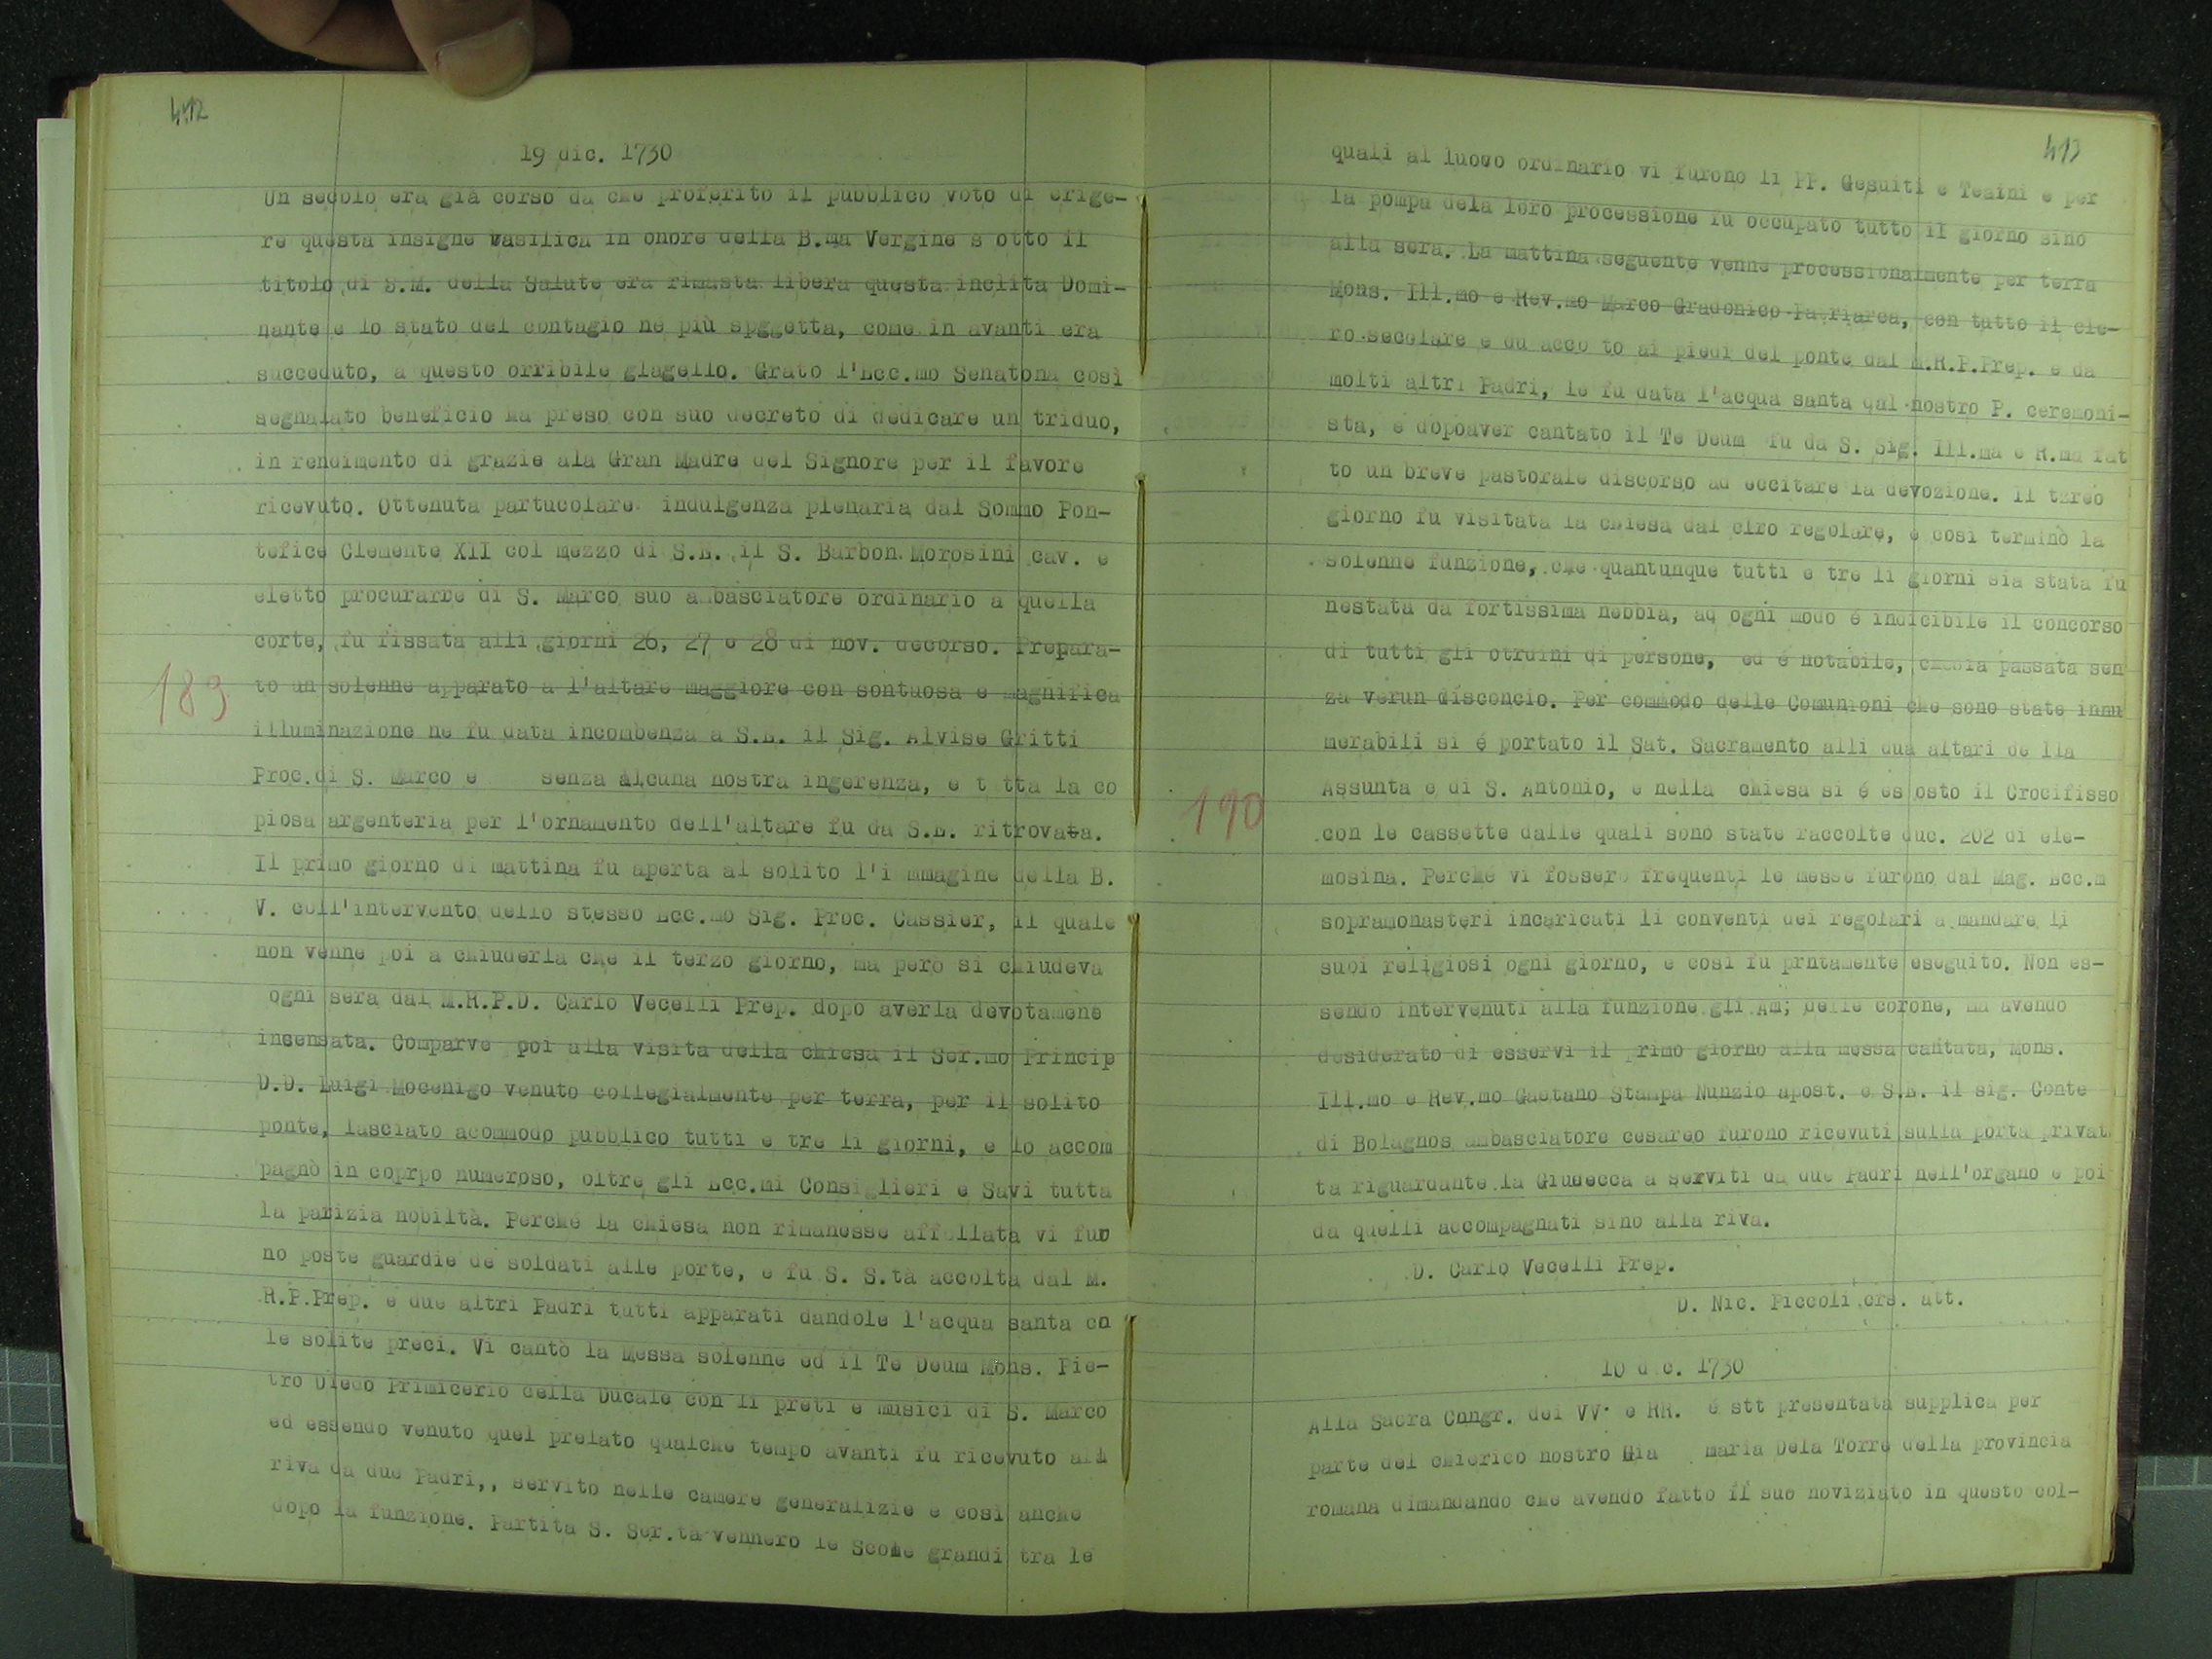 412
19 dic. 1730
Un secolo era già corso da che proferito il pubblico voto di erige-
re questa insigne vasilica in onore della B.ma Vergine s otto il
titolo di S.M. della Salute era rimasta libera questa inclita Domi-
nante e lo stato del contagio né più spggetta, come in avanti era
succeduto, a questo orribile glagello. Grato l'Ecc.mo Senatona così
segnalato beneficio ha preso con suo decreto di dedicare un triduo,
in rendimento di grazie ala Gran Madre del Signore per il favore
ricevuto. Ottenuta partucolare indulgenza plenaria dal Sommo Pon-
tefice Clemente XII col mezzo di S.E. il S. Barbon Morosini cav. e
eletto procurarre di S. Marco suo ambasciatore ordinario a quella
corte, fu fissata alli giorni 26, 27 e 28 di nov. decorso. Prepara-
to un solenne apparato a l'altare maggiore con sontuosa e magnifica
189
illuminazione ne fu data incombenza a S.E. il Sig. Alvise Gritti
Proc.di S. Marco e senza alcuna nostra ingerenza, e t tta la co
piosa argenteria per l'ornamento dell'altare fu da S.E. ritrovata.
Il primo giorno di mattina fu aperta al solito l'i mmagine della B.
V. coll'intervento dello stesso Ecc.mo Sig. Proc. Cassier, il quale
non venne poi a chiuderla che il terzo giorno, ma però si chiudeva
ogni sera dal M.R.P.D. Carlo Vecelli Prep. dopo averla devotamene
incensata. Comparve poi alla visita della chiesa il Ser.mo Princip
D.D. Luigi Mocenigo venuto collegialmente per terra, per il solito
ponte, lasciato acommodo pubblico tutti e tre li giorni, e lo accom
pagnò in coprpo numeroso, oltre gli Ecc.mi Consiglieri e Savi tutta
la parizia nobiltà. Perché la chiesa non rimanesse affollata vi furo
no poste guardie de soldati alle porte, e fu S. S.tà accolta dal M.
R.P.Prep. e due altri Padri tutti apparati dandole l'acqua santa co
le solite preci. Vi cantò la Messa solenne ed il Te Deum Mons. Pie-
tro Diedo Primicerio della Ducale con li preti e musici di S. Marco
ed essendo venuto quel prelato qualche tempo avanti fu ricevuto all
riva da due Padri,, servito nelle camere generalizie e così anche
dopo la funzione. Partita S. Ser.tà vennero le Scole grandi tra le
413
quali al luogo ordinario vi furono li PP. Gesuiti e Teaini e per
la pompa dela loro processione fu occupato tutto il giorno sino
alla sera. La mattina seguente venne processionalmente per terra
Mons. Ill.mo e Rev.mo Marco Gradonico Patriarca, con tutto il cle-
ro secolare e du acco to ai piedi del ponte dal M.R.P.Prep. e da
molti altri Padri, le fu data l'acqua santa qal nostro P. ceremoni-
sta, e dopoaver cantato il Te Deum fu da S. Sig. Ill.ma e R.ma fat
to un breve pastorale discorso ad eccitare la devozione. Il tzreo
giorno fu visitata la chiesa dal clro regolare, e così terminò la
solenne funzione, che quantunque tutti e tre li giorni sia stata fu
nestata da fortissima nebbia, aq ogni modo é indicibile il concorso
di tutti gli otrdini di persone, ed é notabile, chesia passata sen
za verun disconcio. Per commodo delle Comunioni che sono state innu
merabili si é portato il Sat. Sacramento alli dua altari de lla
Assunta e di S. Antonio, e nella chiesa si é es osto il Crocifisso
190
con le cassette dalle quali sono state raccolte duc. 202 di ele-
mosina. Perché vi fossero frequenti le messe furono dal Mag. Ecc.m
sopramonasteri incaricati li conventi dei regolari a mandare li
suoi religiosi ogni giorno, e così fu prntamente eseguito. Non es-
sendo intervenuti alla funzione gli Am; delle corone, ma avendo
desiderato di esservi il primo giorno alla messa cantata, Mons.
Ill.mo e Rev.mo Gaetano Stampa Nunzio apost. e S.E. il sig. Conte
di Bolagnos ambasciatore cesareo furono ricevuti sulla porta privat
ta riguardante la Giudecca a serviti da due Padri nell'organo e poi
da quelli accompagnati sino alla riva.
D. Carlo Vecelli Prep.
D. Nic. Piccoli crs. att.
10 d c. 1730
Alla Sacra Cnngr. dei VV. e RR. é stt presentata supplica per
parte del chierico nostro Gia maria Dela Torre della provincia
romana dimandando che avendo fatto il suo noviziato in questo col-